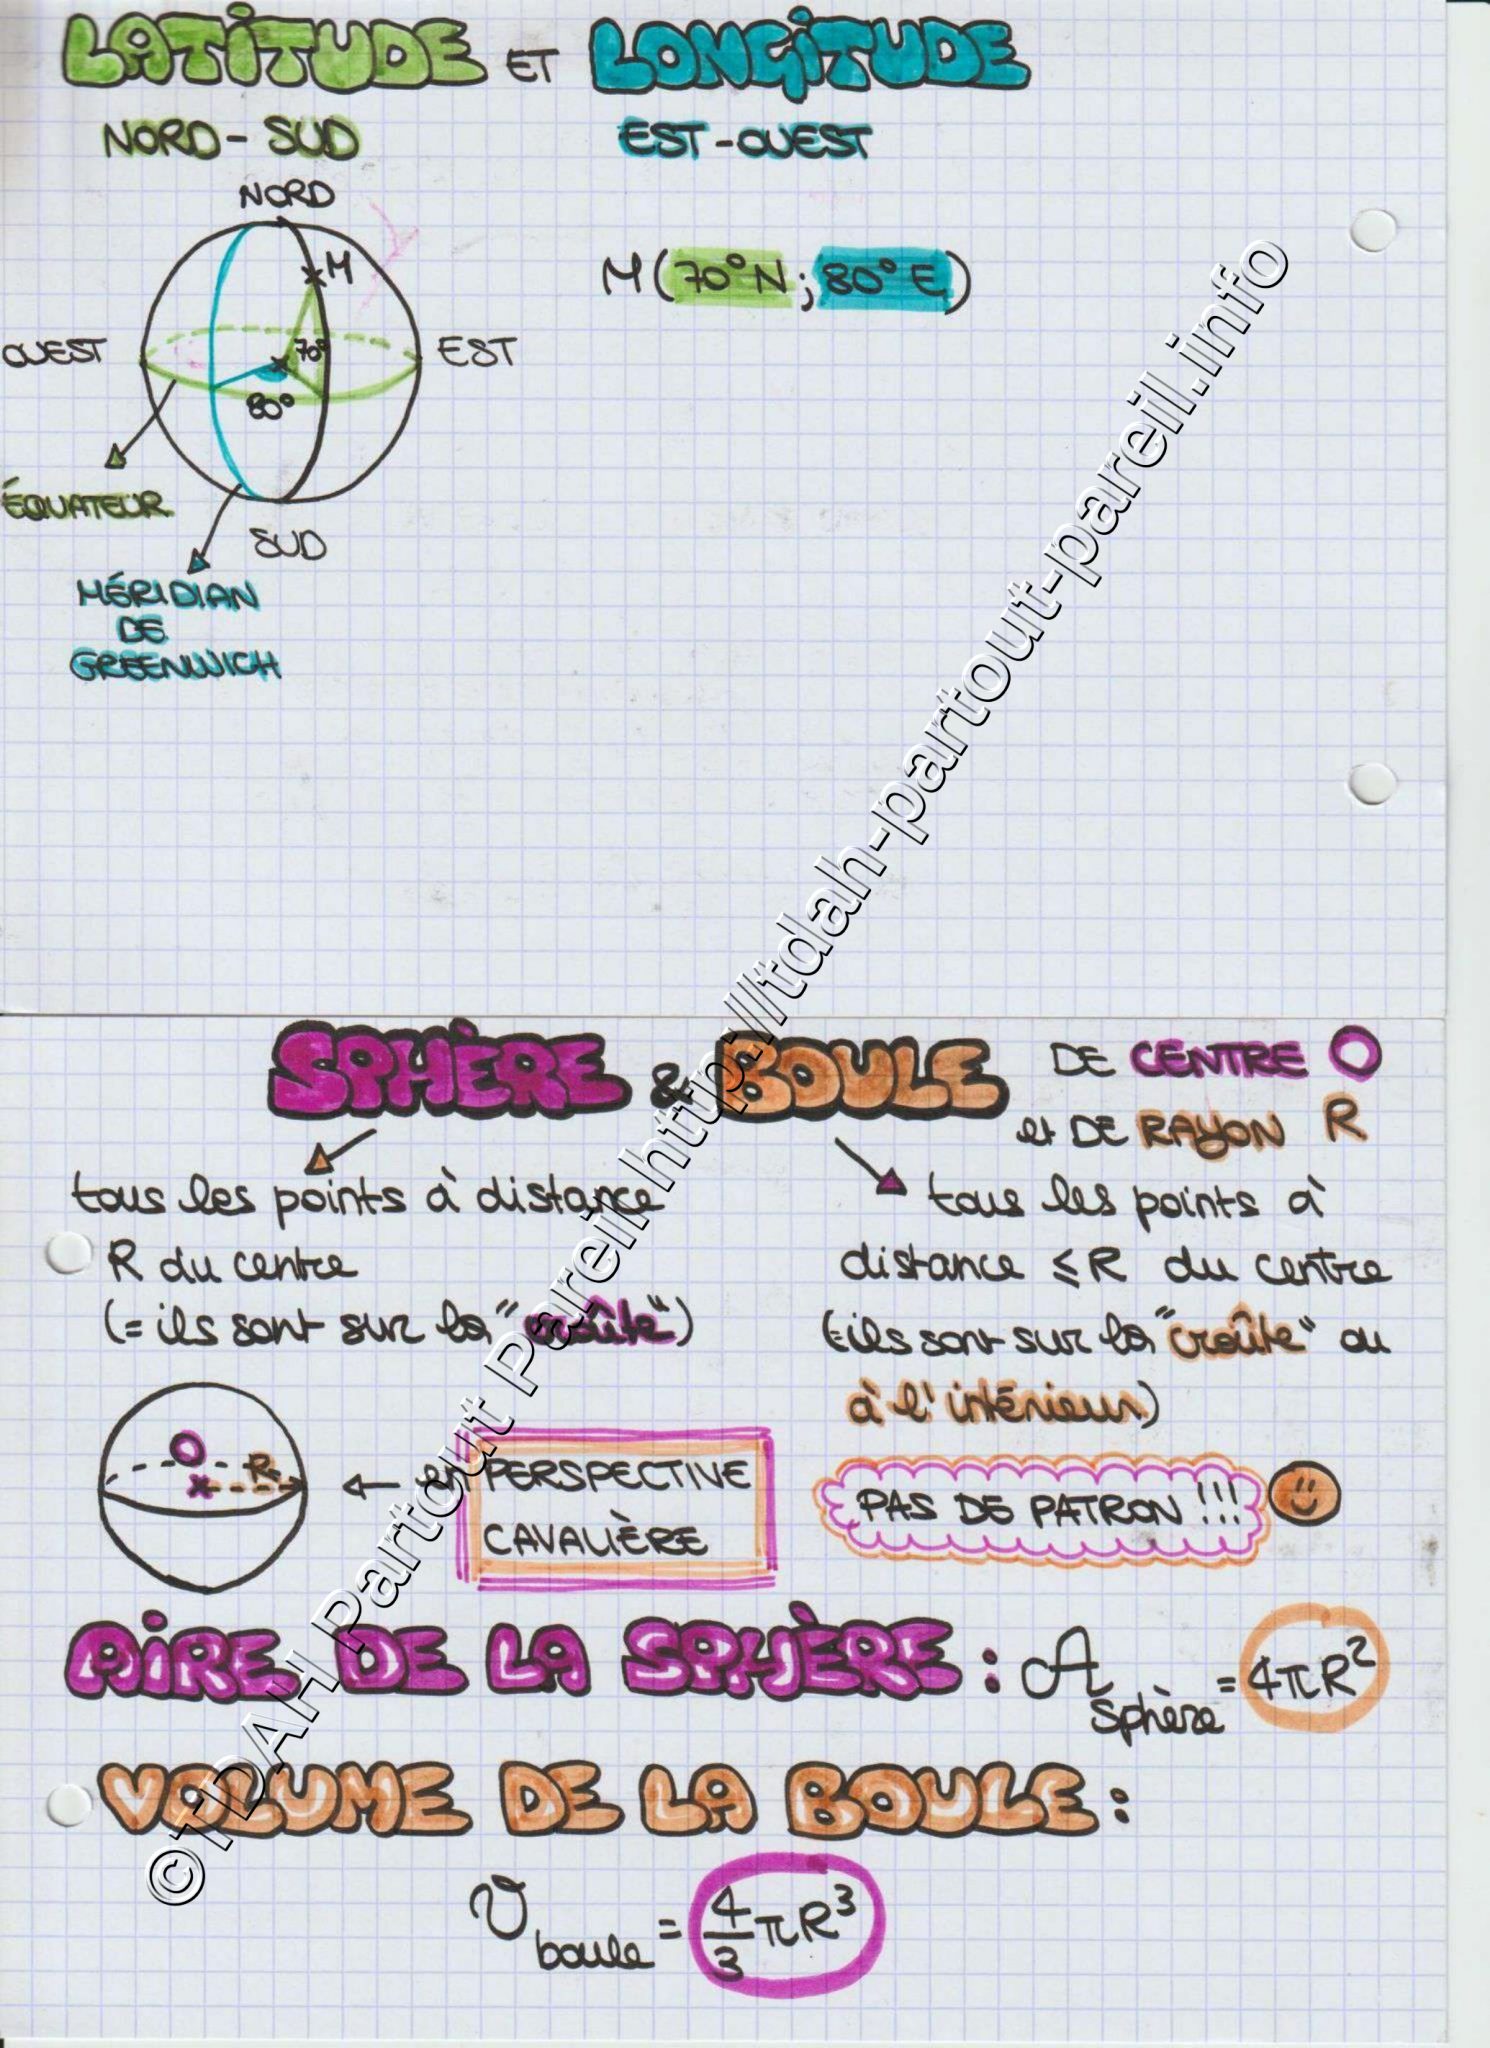 LATITUDE ET LONGITUDE
NORD - SUD
EST - OUEST
NORD
M
M (70° N ; 80° E)
OUEST
70°
EST
80°
ÉQUATEUR
SUD
MÉRIDIAN
DE
GREENWICH
SPHÈRE & BOULE DE CENTRE O
et DE RAYON R
tous les points à distance
R du centre
(= ils sont sur la "croûte")
tous les points à
distance ≤ R du centre
(= ils sont sur la "croûte" ou
à l'intérieur)
O
R
← en PERSPECTIVE
CAVALIÈRE
PAS DE PATRON !!!
AIRE DE LA SPHÈRE : A sphère = 4πR²
VOLUME DE LA BOULE :
V boule = 4/3 πR³
©TDAH Partout Pareil http://tdah-partout-pareil.info